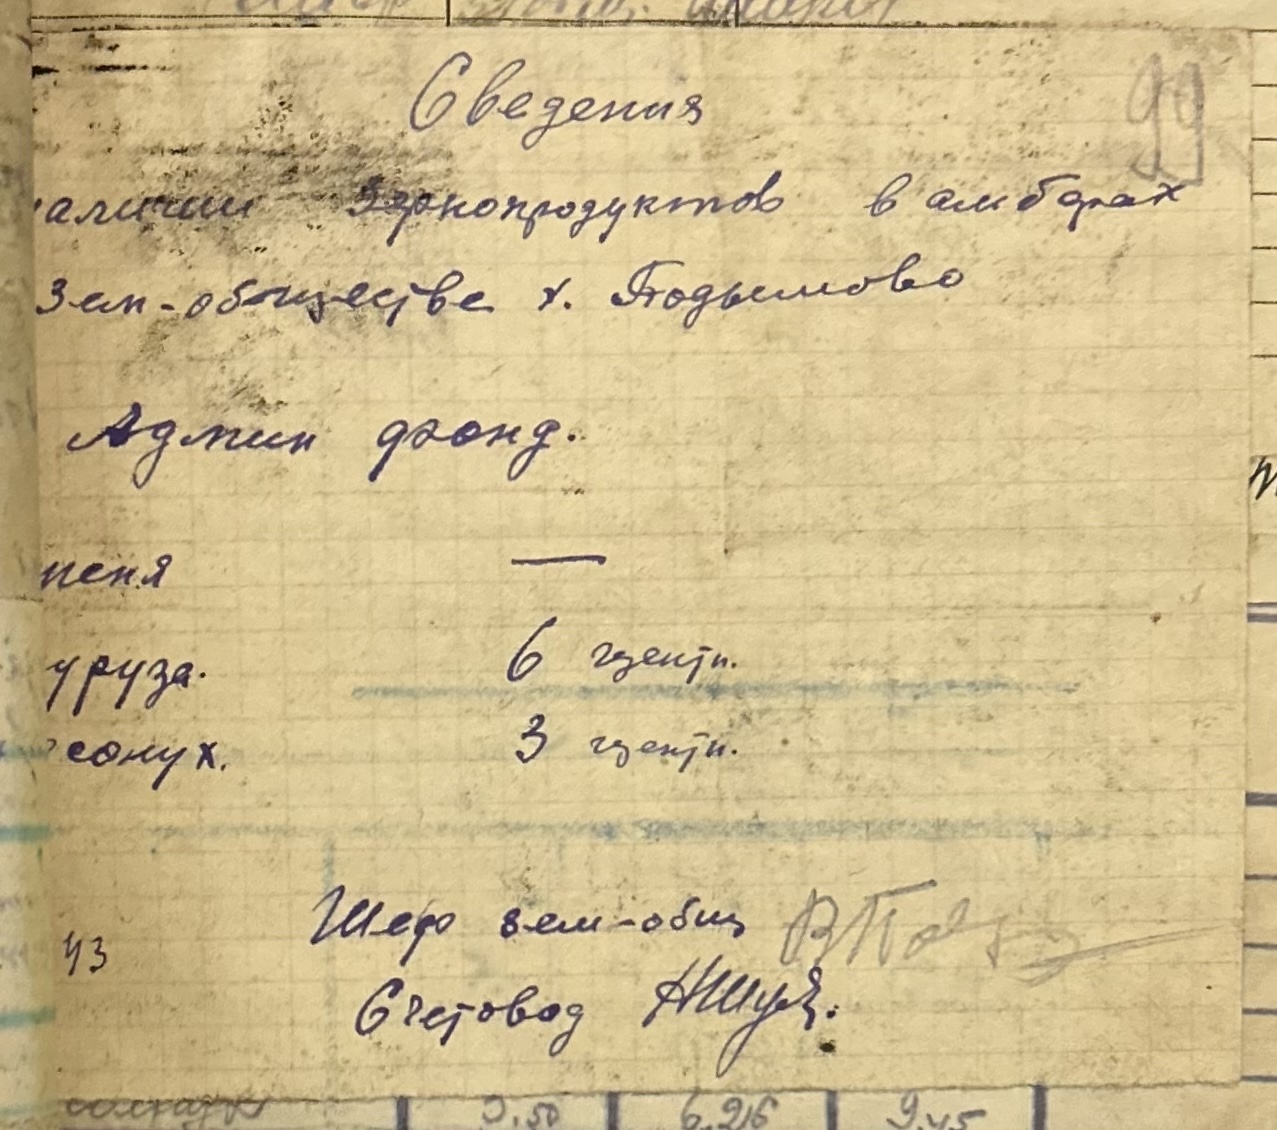 Сведения
99
аличии Зернопродуктов в амбарах
Зем-обществе х. Подымово
Админ фонд.
меня —
уруза. 6 центн.
солнух. 3 центн.
Шеф зем-общ
43
Счетовод
3.50 6.216 9.45